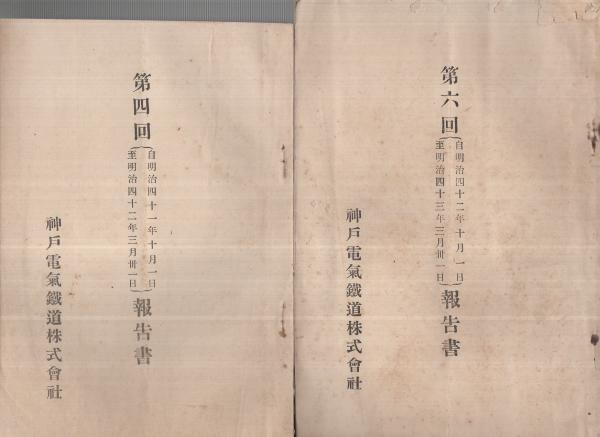 第六回
自明治四十二年十月一日
至明治四十三年三月卅一日
報告書
神戶電氣鐵道株式會社
第四回
自明治四十一年十月一日
至明治四十二年三月卅一日
報告書
神戶電氣鐵道株式會社